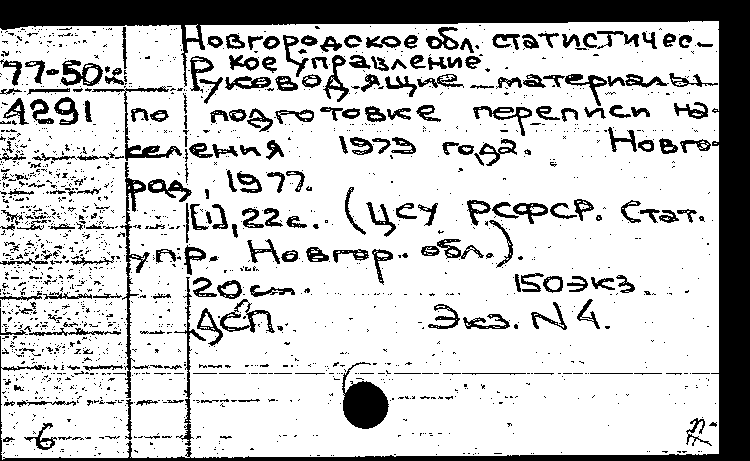 Новгородское обл. статистичес-
кое управление.
77-50к Руководящие материалы
4291 по подготовке переписи на-
селения 1979 года. Новго-
род, 1977.
[1], 22 с. (ЦСУ РСФСР. Стат.
упр. Новгор. обл.).
20 см. 150 экз.
ДСП. Экз. N 4.
6